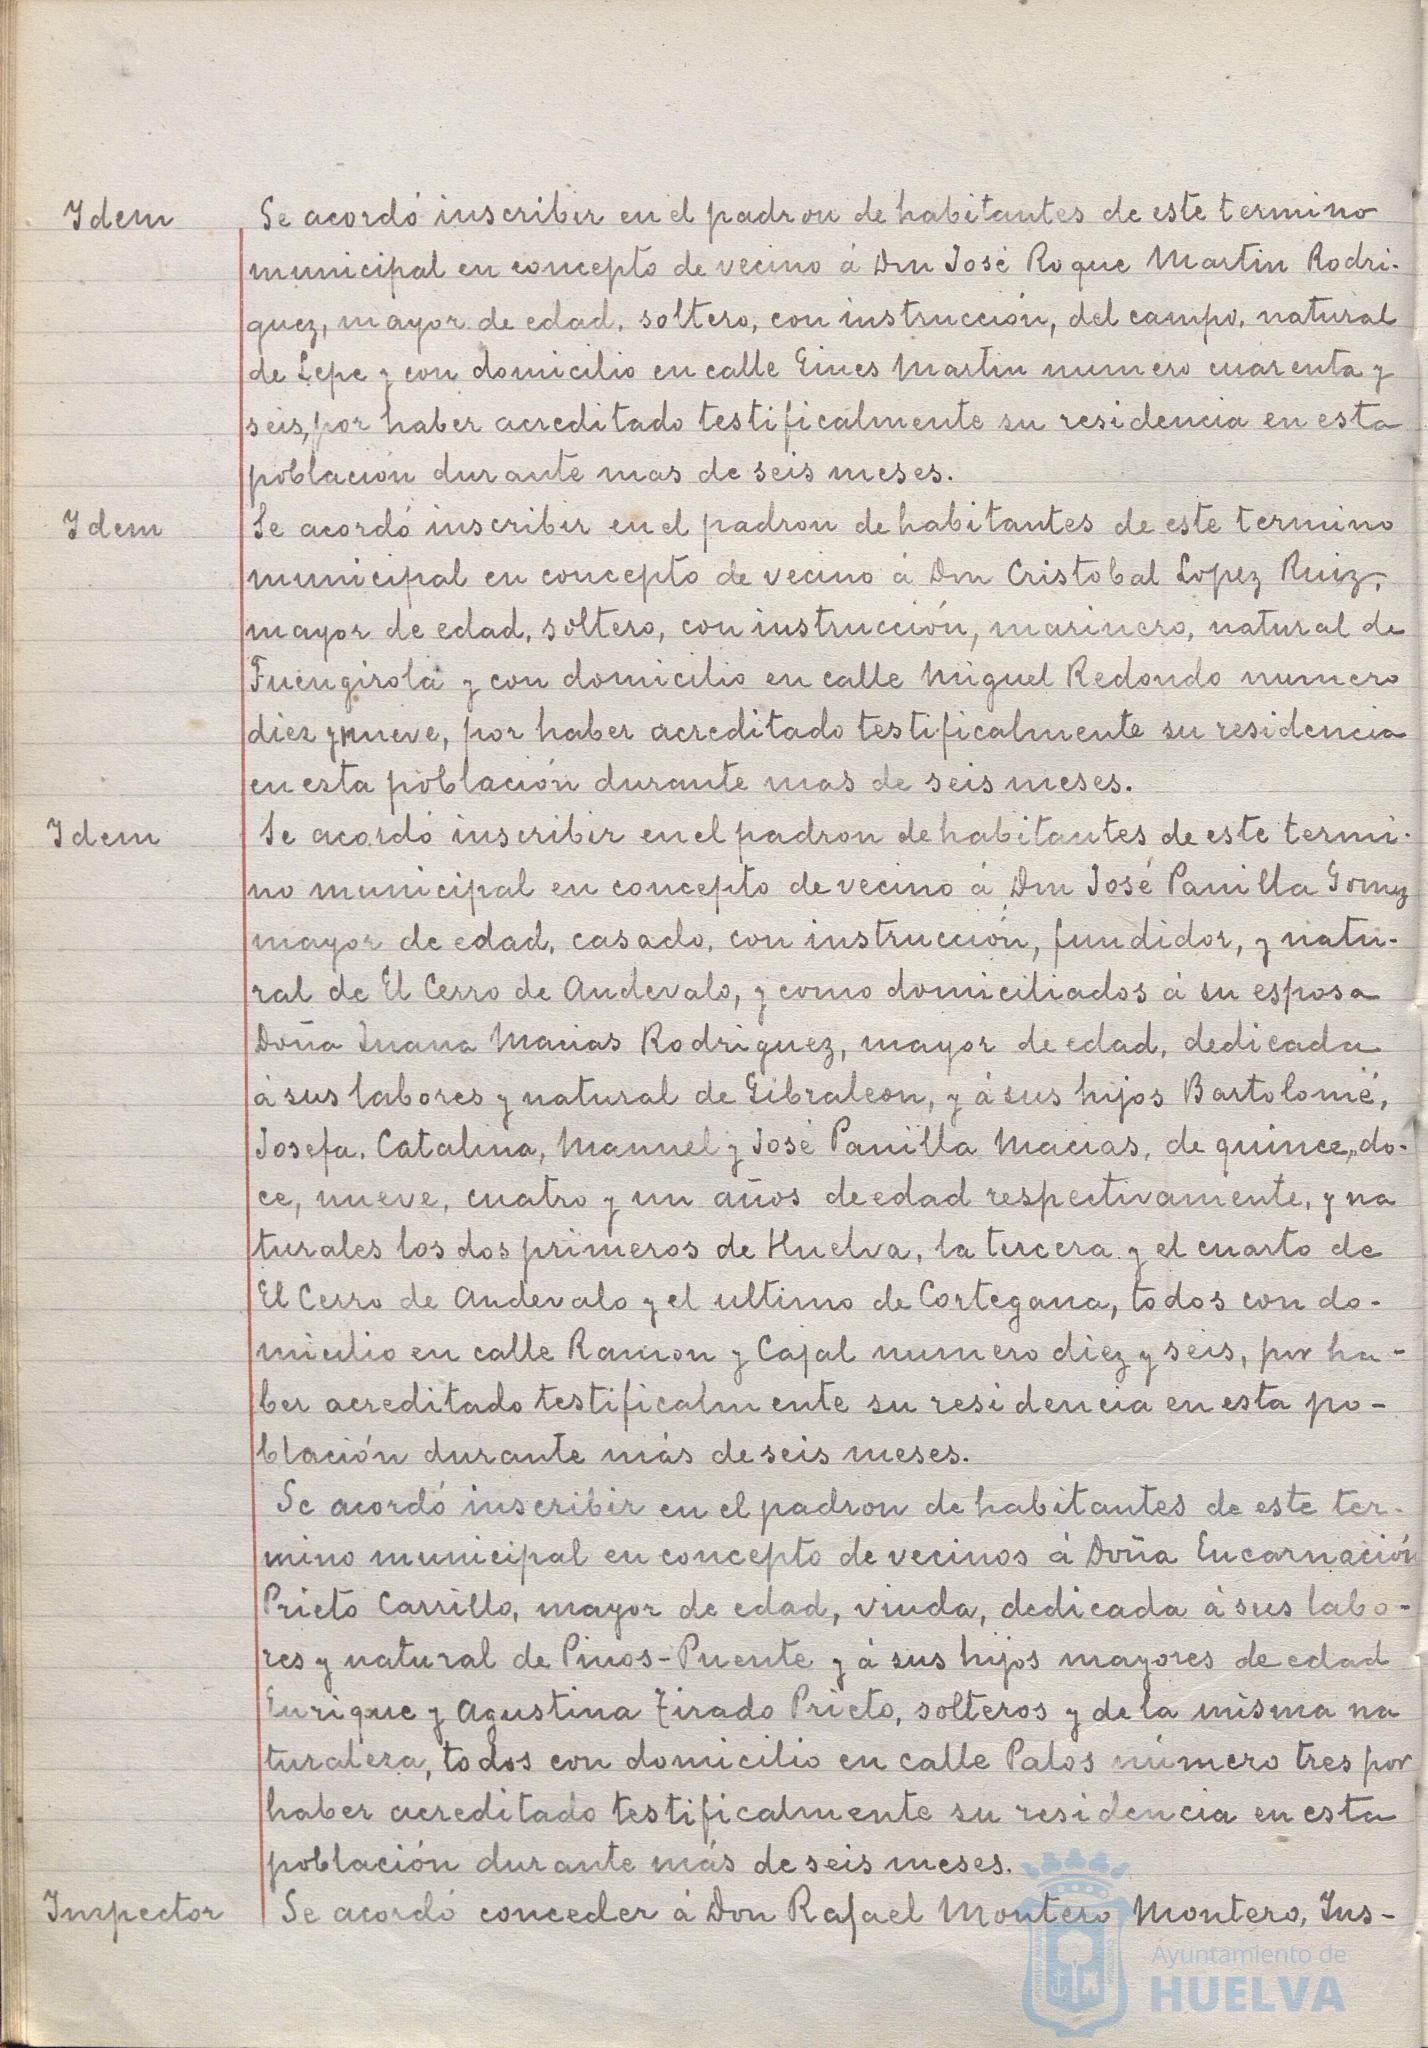 Idem
Se acordó inscribir en el padron de habitantes de este termino
municipal en concepto de vecino á Don José Roque Martin Rodri-
guez, mayor de edad, soltero, con instrucción, del campo, natural
de Lepe y con domicilio en calle Gines Martin numero cuarenta y
seis, por haber acreditado testificalmente su residencia en esta
población durante mas de seis meses.
Idem
Se acordó inscribir en el padron de habitantes de este termino
municipal en concepto de vecino á Don Cristobal Lopez Ruiz,
mayor de edad, soltero, con instrucción, marinero, natural de
Fuengirola y con domicilio en calle Miguel Redondo numero
diez y nueve, por haber acreditado testificalmente su residencia
en esta población durante mas de seis meses.
Idem
Se acordó inscribir en el padron de habitantes de este termi-
no municipal en concepto de vecino á Don José Panilla Gomez
mayor de edad, casado, con instrucción, fundidor, y natu-
ral de El Cerro de Andevalo, y como domiciliados á su esposa
Doña Juana Macias Rodriguez, mayor de edad, dedicada
á sus labores y natural de Gibraleon, y á sus hijos Bartolomé,
Josefa, Catalina, Manuel y José Panilla Macias, de quince, do-
ce, nueve, cuatro y un años de edad respectivamente, y na
turales los dos primeros de Huelva, la tercera y el cuarto de
El Cerro de Andevalo y el ultimo de Cortegana, todos con do-
micilio en calle Ramon y Cajal numero diez y seis, por ha-
ber acreditado testificalmente su residencia en esta po-
blación durante más de seis meses.
Se acordó inscribir en el padron de habitantes de este ter-
mino municipal en concepto de vecinos á Doña Encarnación
Prieto Carrillo, mayor de edad, viuda, dedicada á sus labo-
res y natural de Pinos-Puente y á sus hijos mayores de edad
Enrique y Agustina Tirado Prieto, solteros y de la misma na
turaleza, todos con domicilio en calle Palos número tres por
haber acreditado testificalmente su residencia en esta
población durante más de seis meses.
Inspector
Se acordó conceder á Don Rafael Montero Montero, Ins-
Ayuntamiento de
HUELVA